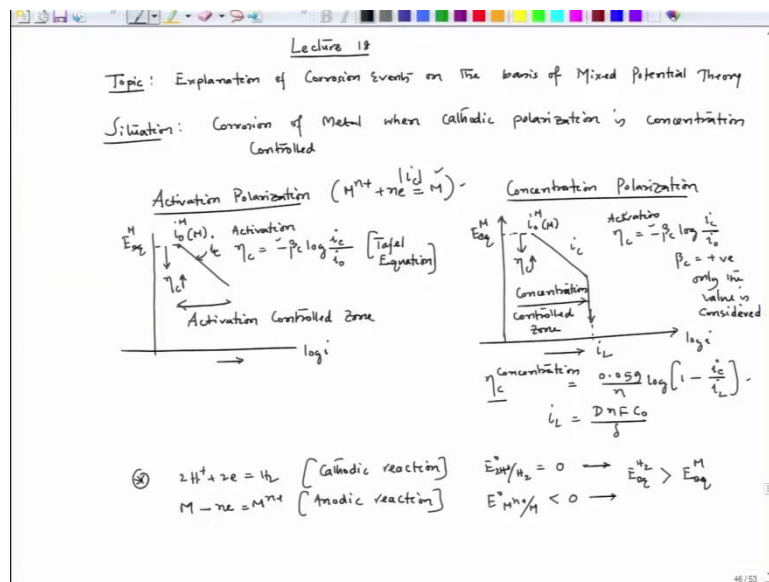 Lecture 18
Topic: Explanation of Corrosion Events on The basis of Mixed Potential Theory
Situation: Corrosion of Metal when cathodic polarization is concentration
Controlled
Activation Polarization (Mⁿ⁺ + ne = M)
|i_c|
E_eq^M
i_0^M(M).
i_c
Activation
η_c = -β_c log i_c/i_0 [Tafel Equation]
η_c↑
Activation Controlled Zone
log i
Concentration Polarization
E_eq^M
i_0^M(M)
i_c
Activation
η_c = -β_c log i_c/i_0
β_c = +ve
only the
value is
considered
η_c↑
Concentration
Controlled
zone
i_L
log i
η_c^Concentration = 0.059/n log [1 - i_c/i_L].
i_L = DnFC_0/δ
2H⁺ + 2e = H₂ [Cathodic reaction] E°_2H⁺/H₂ = 0 → E_eq^H₂ > E_eq^M
M - ne = Mⁿ⁺ [Anodic reaction] E°_Mⁿ⁺/M < 0 →
46/53